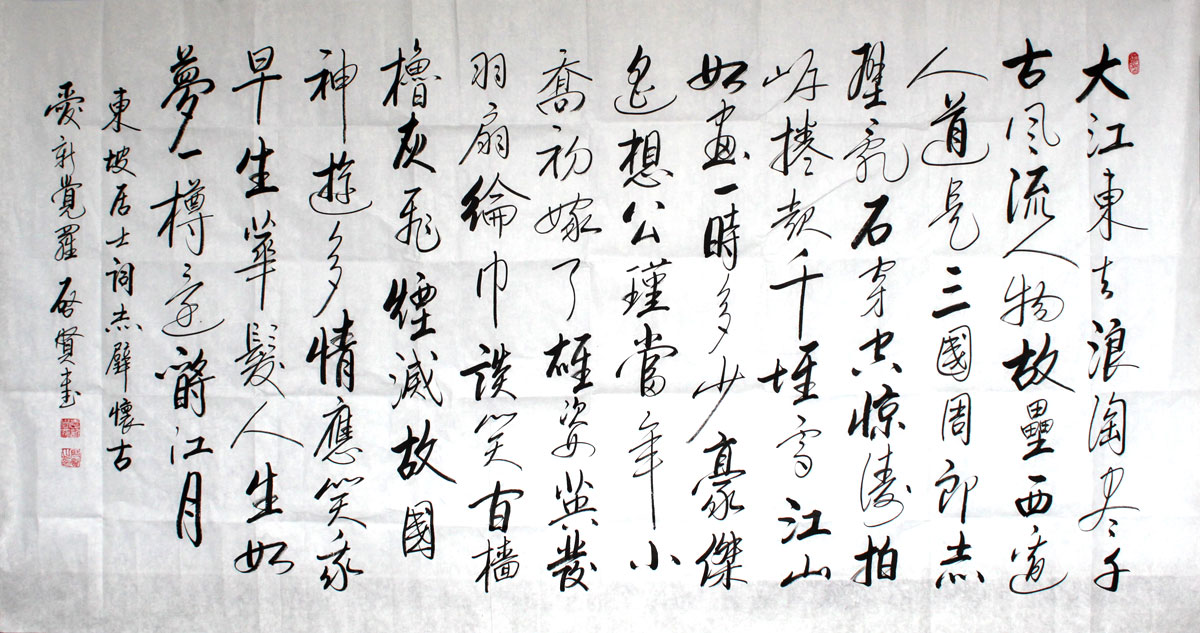 大江東去浪淘尽千
古风流人物故壘西邊
人道是三國周郎赤
壁亂石穿空惊濤拍
岸捲起千堆雪江山
如畫一時多少豪傑
遙想公瑾當年小
喬初嫁了雄姿英發
羽扇綸巾談笑间檣
櫓灰飛煙滅故國
神遊多情應笑我
早生華髮人生如
夢一樽還酹江月
東坡居士詞赤壁懷古
愛新覺羅 啓賢書